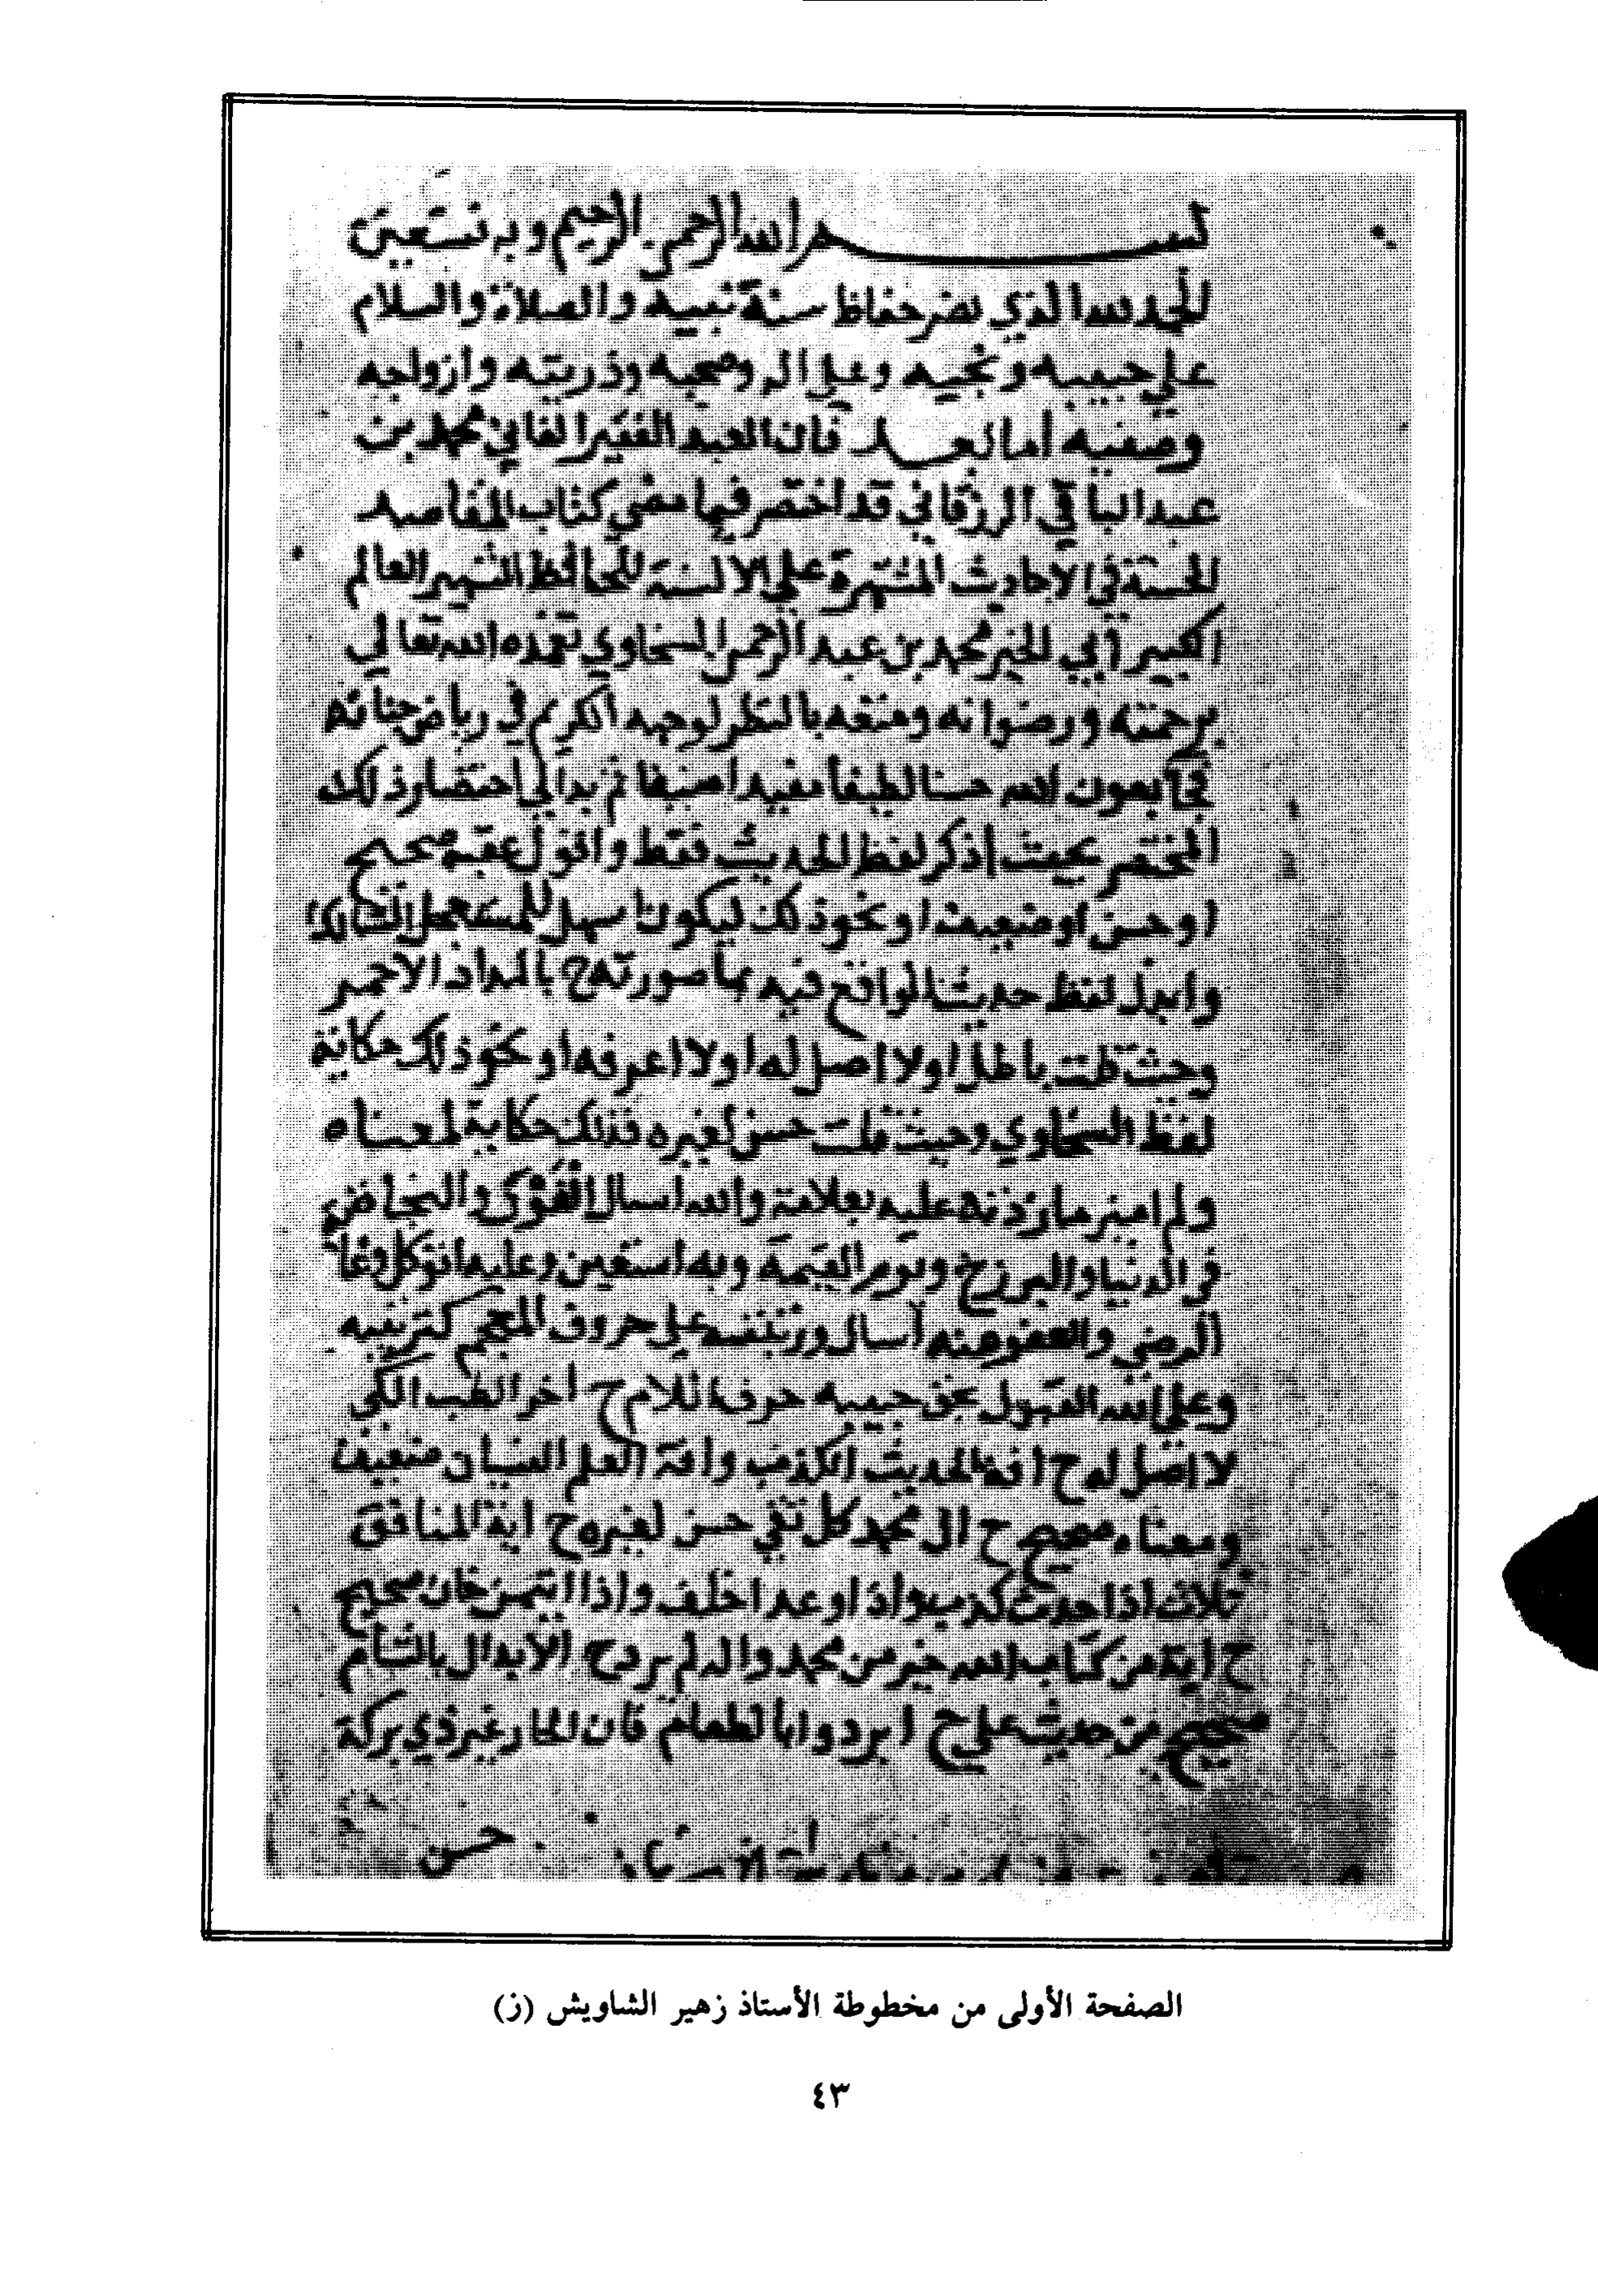 بسم الله الرحمن الرحيم وبه نستعين
الحمد لله الذي نضر حفاظ سنة نبيه والصلاة والسلام
علي حبيبه ونجيه وعلي اله وصحبه وذريته وازواجه
وصفيه أما بعد فان العبد الفقير الفاني محمد بن
عبد الباقي الزرقاني قد اختصر فيما مضي كتاب المقاصد
الحسنة في الاحاديث المشتهرة علي الالسنة للحافظ الشهير العالم
الكبير أبي الخير محمد بن عبد الرحمن السخاوي تغمده الله تعالي
برحمته ورضوانه ومتعه بالنظر لوجهه الكريم في رياض جنانه
فجا بعون الله حسنا لطيفا مفيدا منيفا ثم بدا لي اختصار ذلك
المختصر بحيث أذكر لفظ الحديث فقط واقول عقبه صحيح
او حسن او ضعيف او نحو ذلك ليكون اسهل للمستعجل
واجعل لفظ حديث الواقع فيه بما صورته ح بالمداد الاحمر
وحيث قلت باطل او لا اصل له او لا اعرفه او نحو ذلك حكاية
لفظ السخاوي وحيث قلت حسن لغيره فذلك حكاية لمعناه
ولم اميز ما زدته عليه بعلامة والله اسال والنجا
في الدنيا والبرزخ ويوم القيمة وبه استعين وعليه اتوكل
الرضي والعفو منه أسال ورتبته علي حروف المعجم كترتيبه
وعلي الله القبول بحق حبيبه حرف اللام ح أخر الطب الكي
لا اصل له ح افة الحديث الكذب وافة العلم النسيان ضعيف
ومعناه صحيح ح ال محمد كل تقي حسن لغيره ح اية المنافق
ثلاث اذا حدث كذب واذا وعد اخلف واذا ايتمن خان صحيح
ح اية من كتاب الله خير من محمد واله لم يرد ح الابدال بالشام
صحيح من حديث علي ح ابردوا بالطعام فان الحار غير ذي بركة
حسن
الصفحة الأولى من مخطوطة الأستاذ زهير الشاويش (ز)
٤٣